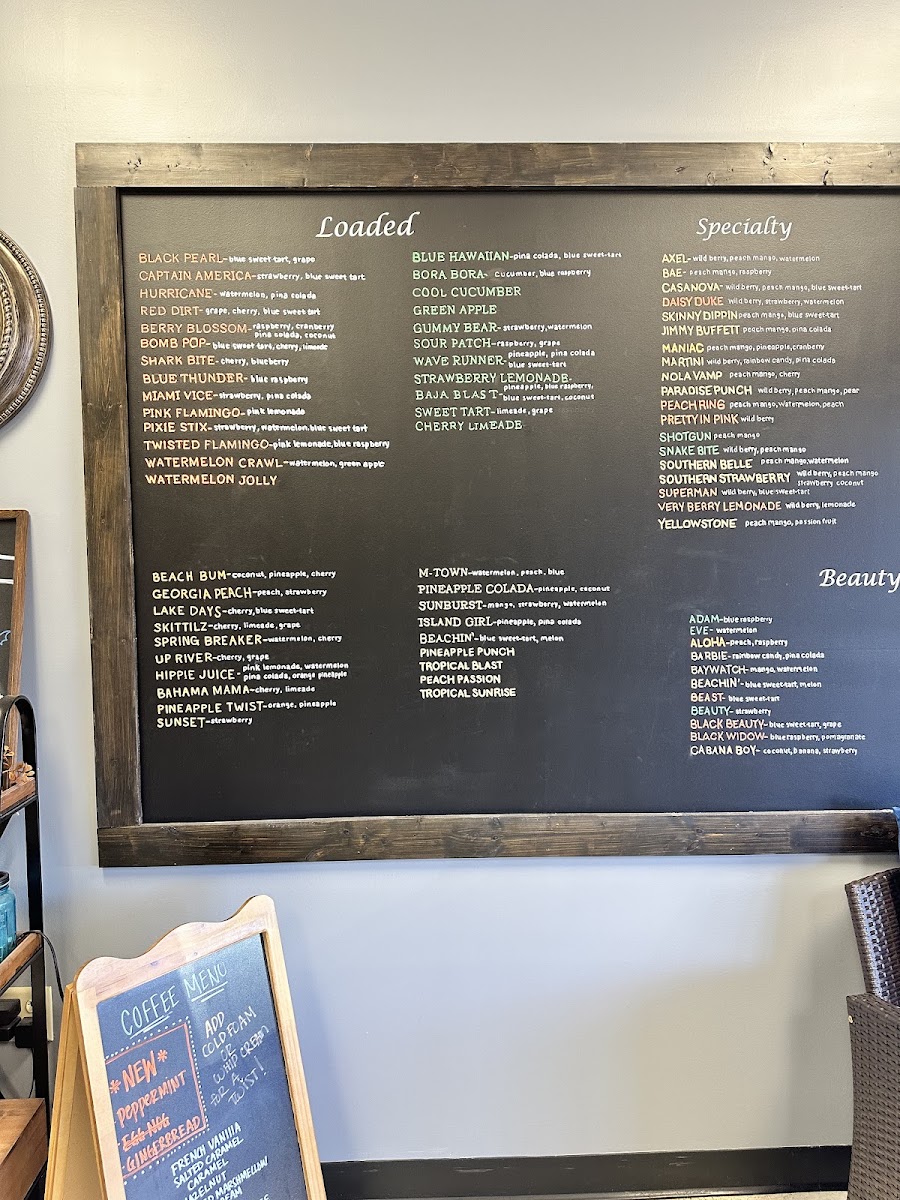 Loaded
BLACK PEARL-blue sweet tart, grape
CAPTAIN AMERICA-strawberry, blue sweet tart
HURRICANE-watermelon, pina colada
RED DIRT-grape, cherry, blue sweet tart
BERRY BLOSSOM-raspberry, cranberry
pina colada, coconut
BOMB POP-blue sweet tart, cherry, limeade
SHARK BITE-cherry, blueberry
BLUE THUNDER-blue raspberry
MIAMI VICE-strawberry, pina colada
PINK FLAMINGO-pink lemonade
PIXIE STIX-strawberry, watermelon, blue sweet tart
TWISTED FLAMINGO-pink lemonade, blue raspberry
WATERMELON CRAWL-watermelon, green apple
WATERMELON JOLLY
BLUE HAWAIIAN-pina colada, blue sweet-tart
BORA BORA- cucumber, blue raspberry
COOL CUCUMBER
GREEN APPLE
GUMMY BEAR-strawberry, watermelon
SOUR PATCH-raspberry, grape
WAVE RUNNER-pineapple, pina colada
blue sweet-tart
STRAWBERRY LEMONADE-
BAJA BLAST-pineapple, blue raspberry,
blue sweet-tart, coconut
SWEET TART-limeade, grape
CHERRY LIMEADE
BEACH BUM-coconut, pineapple, cherry
GEORGIA PEACH-peach, strawberry
LAKE DAYS-cherry, blue sweet-tart
SKITTILZ-cherry, limeade, grape
SPRING BREAKER-watermelon, cherry
UP RIVER-cherry, grape
HIPPIE JUICE-pink lemonade, watermelon
pina colada, orange pineapple
BAHAMA MAMA-cherry, limeade
PINEAPPLE TWIST-orange, pineapple
SUNSET-strawberry
M-TOWN-watermelon, peach, blue
PINEAPPLE COLADA-pineapple, coconut
SUNBURST-mango, strawberry, watermelon
ISLAND GIRL-pineapple, pina colada
BEACHIN'-blue sweet-tart, melon
PINEAPPLE PUNCH
TROPICAL BLAST
PEACH PASSION
TROPICAL SUNRISE
Specialty
AXEL-wild berry, peach mango, watermelon
BAE-peach mango, raspberry
CASANOVA-wild berry, peach mango, blue sweet-tart
DAISY DUKE wild berry, strawberry, watermelon
SKINNY DIPPIN peach mango, blue sweet-tart
JIMMY BUFFETT peach mango, pina colada
MANIAC peach mango, pineapple, cranberry
MARTINI wild berry, rainbow candy, pina colada
NOLA VAMP peach mango, cherry
PARADISE PUNCH wild berry, Peach mango, pear
PEACH RING peach mango, watermelon, peach
PRETTY IN PINK wild berry
SHOTGUN peach mango
SNAKE BITE wild berry, peach mango
SOUTHERN BELLE peach mango, watermelon
SOUTHERN STRAWBERRY wild berry, peach mango
strawberry coconut
SUPERMAN wild berry, blue sweet-tart
VERY BERRY LEMONADE wild berry, lemonade
YELLOWSTONE peach mango, passion fruit
Beauty
ADAM-blue raspberry
EVE- watermelon
ALOHA-peach, raspberry
BARBIE-rainbow candy, pina colada
BAYWATCH-mango, watermelon
BEACHIN'-blue sweet-tart, melon
BEAST- blue sweet-tart
BEAUTY-strawberry
BLACK BEAUTY-blue sweet-tart, grape
BLACK WIDOW-blue raspberry, pomagranate
CABANA BOY- coconut, banana, strawberry
COFFEE MENU
*NEW*
PEPPERMINT
EGG NOG
GINGERBREAD
ADD
COLD FOAM
OR
WHIP CREAM
FOR A
TWIST!
FRENCH VANILLA
SALTED CARAMEL
CARAMEL
HAZELNUT
MARSHMELLOW